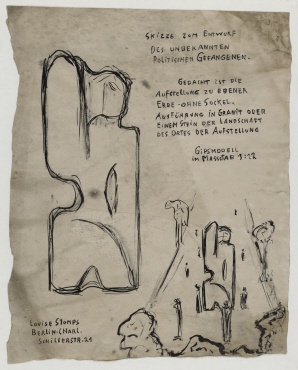 SKIZZE ZUM ENTWURF
DES UNBEKANNTEN
POLITISCHEN GEFANGENEN.
GEDACHT IST DIE
AUFSTELLUNG ZU EBENER
ERDE - OHNE SOCKEL.
AUSFÜHRUNG IN GRANIT ODER
EINEM STEIN DER LANDSCHAFT
DES OATES DER AUFSTELLUNG
GIPSMODELL
IM MASSTAB 1:12
LOUISE STOMPS
BERLIN-CHARL.
SCHILLERSTR. 21